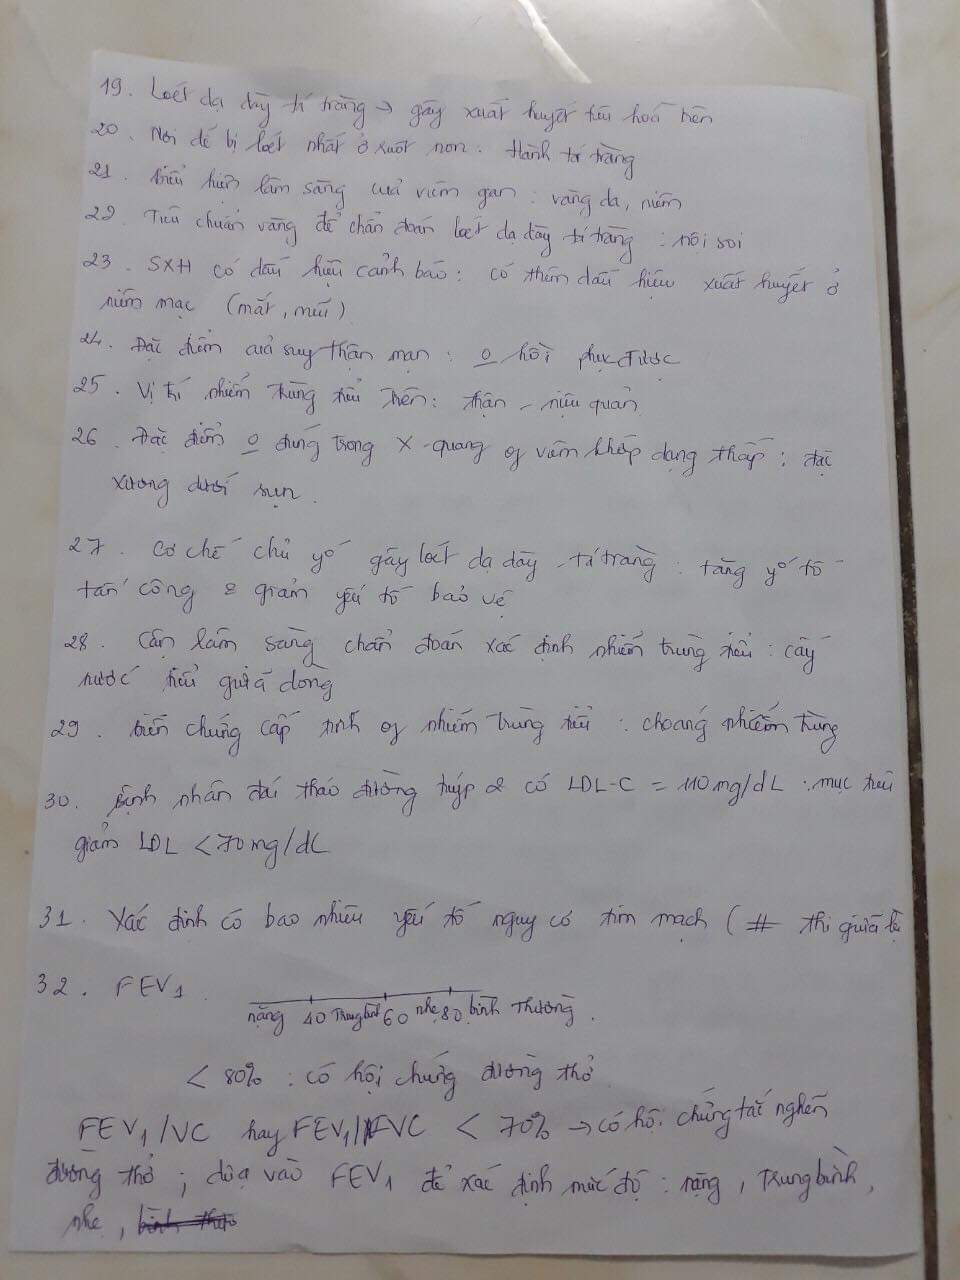 19. Loét dạ dày tá tràng → gây xuất huyết tiêu hoá trên
20. Nơi dễ bị loét nhất ở ruột non: Hành tá tràng
21. Biểu hiện lâm sàng của viêm gan: vàng da, niêm
22. Tiêu chuẩn vàng để chẩn đoán loét dạ dày tá tràng: nội soi
23. SXH có dấu hiệu cảnh báo: có thêm dấu hiệu xuất huyết ở
niêm mạc (mắt, mũi)
24. Đặc điểm của suy thận mạn: 0 hồi phục được
25. Vị trí nhiễm trùng tiểu trên: thận - niệu quản
26. Đặc điểm 0 đúng trong X-quang of viêm khớp dạng thấp: đặc
xương dưới sụn.
27. Cơ chế chủ yếu gây loét dạ dày - tá tràng: tăng yếu tố
tấn công & giảm yếu tố bảo vệ
28. Cận lâm sàng chẩn đoán xác định nhiễm trùng tiểu: cấy
nước tiểu giữa dòng
29. Biến chứng cấp tính of nhiễm trùng tiểu: choáng nhiễm trùng
30. Bệnh nhân đái tháo đường tuýp 2 có LDL-C = 110mg/dL: mục tiêu
giảm LDL < 70mg/dL
31. Xác định có bao nhiêu yếu tố nguy cơ tim mạch (# thi giữa
32. FEV1.
nặng 40 Trung bình 60 nhẹ 80 bình thường.
< 80%: có hội chứng đường thở
FEV1/VC hay FEV1/FVC < 70% → có hội chứng tắc nghẽn
đường thở; dựa vào FEV1 để xác định mức độ: nặng, Trung bình,
nhẹ,